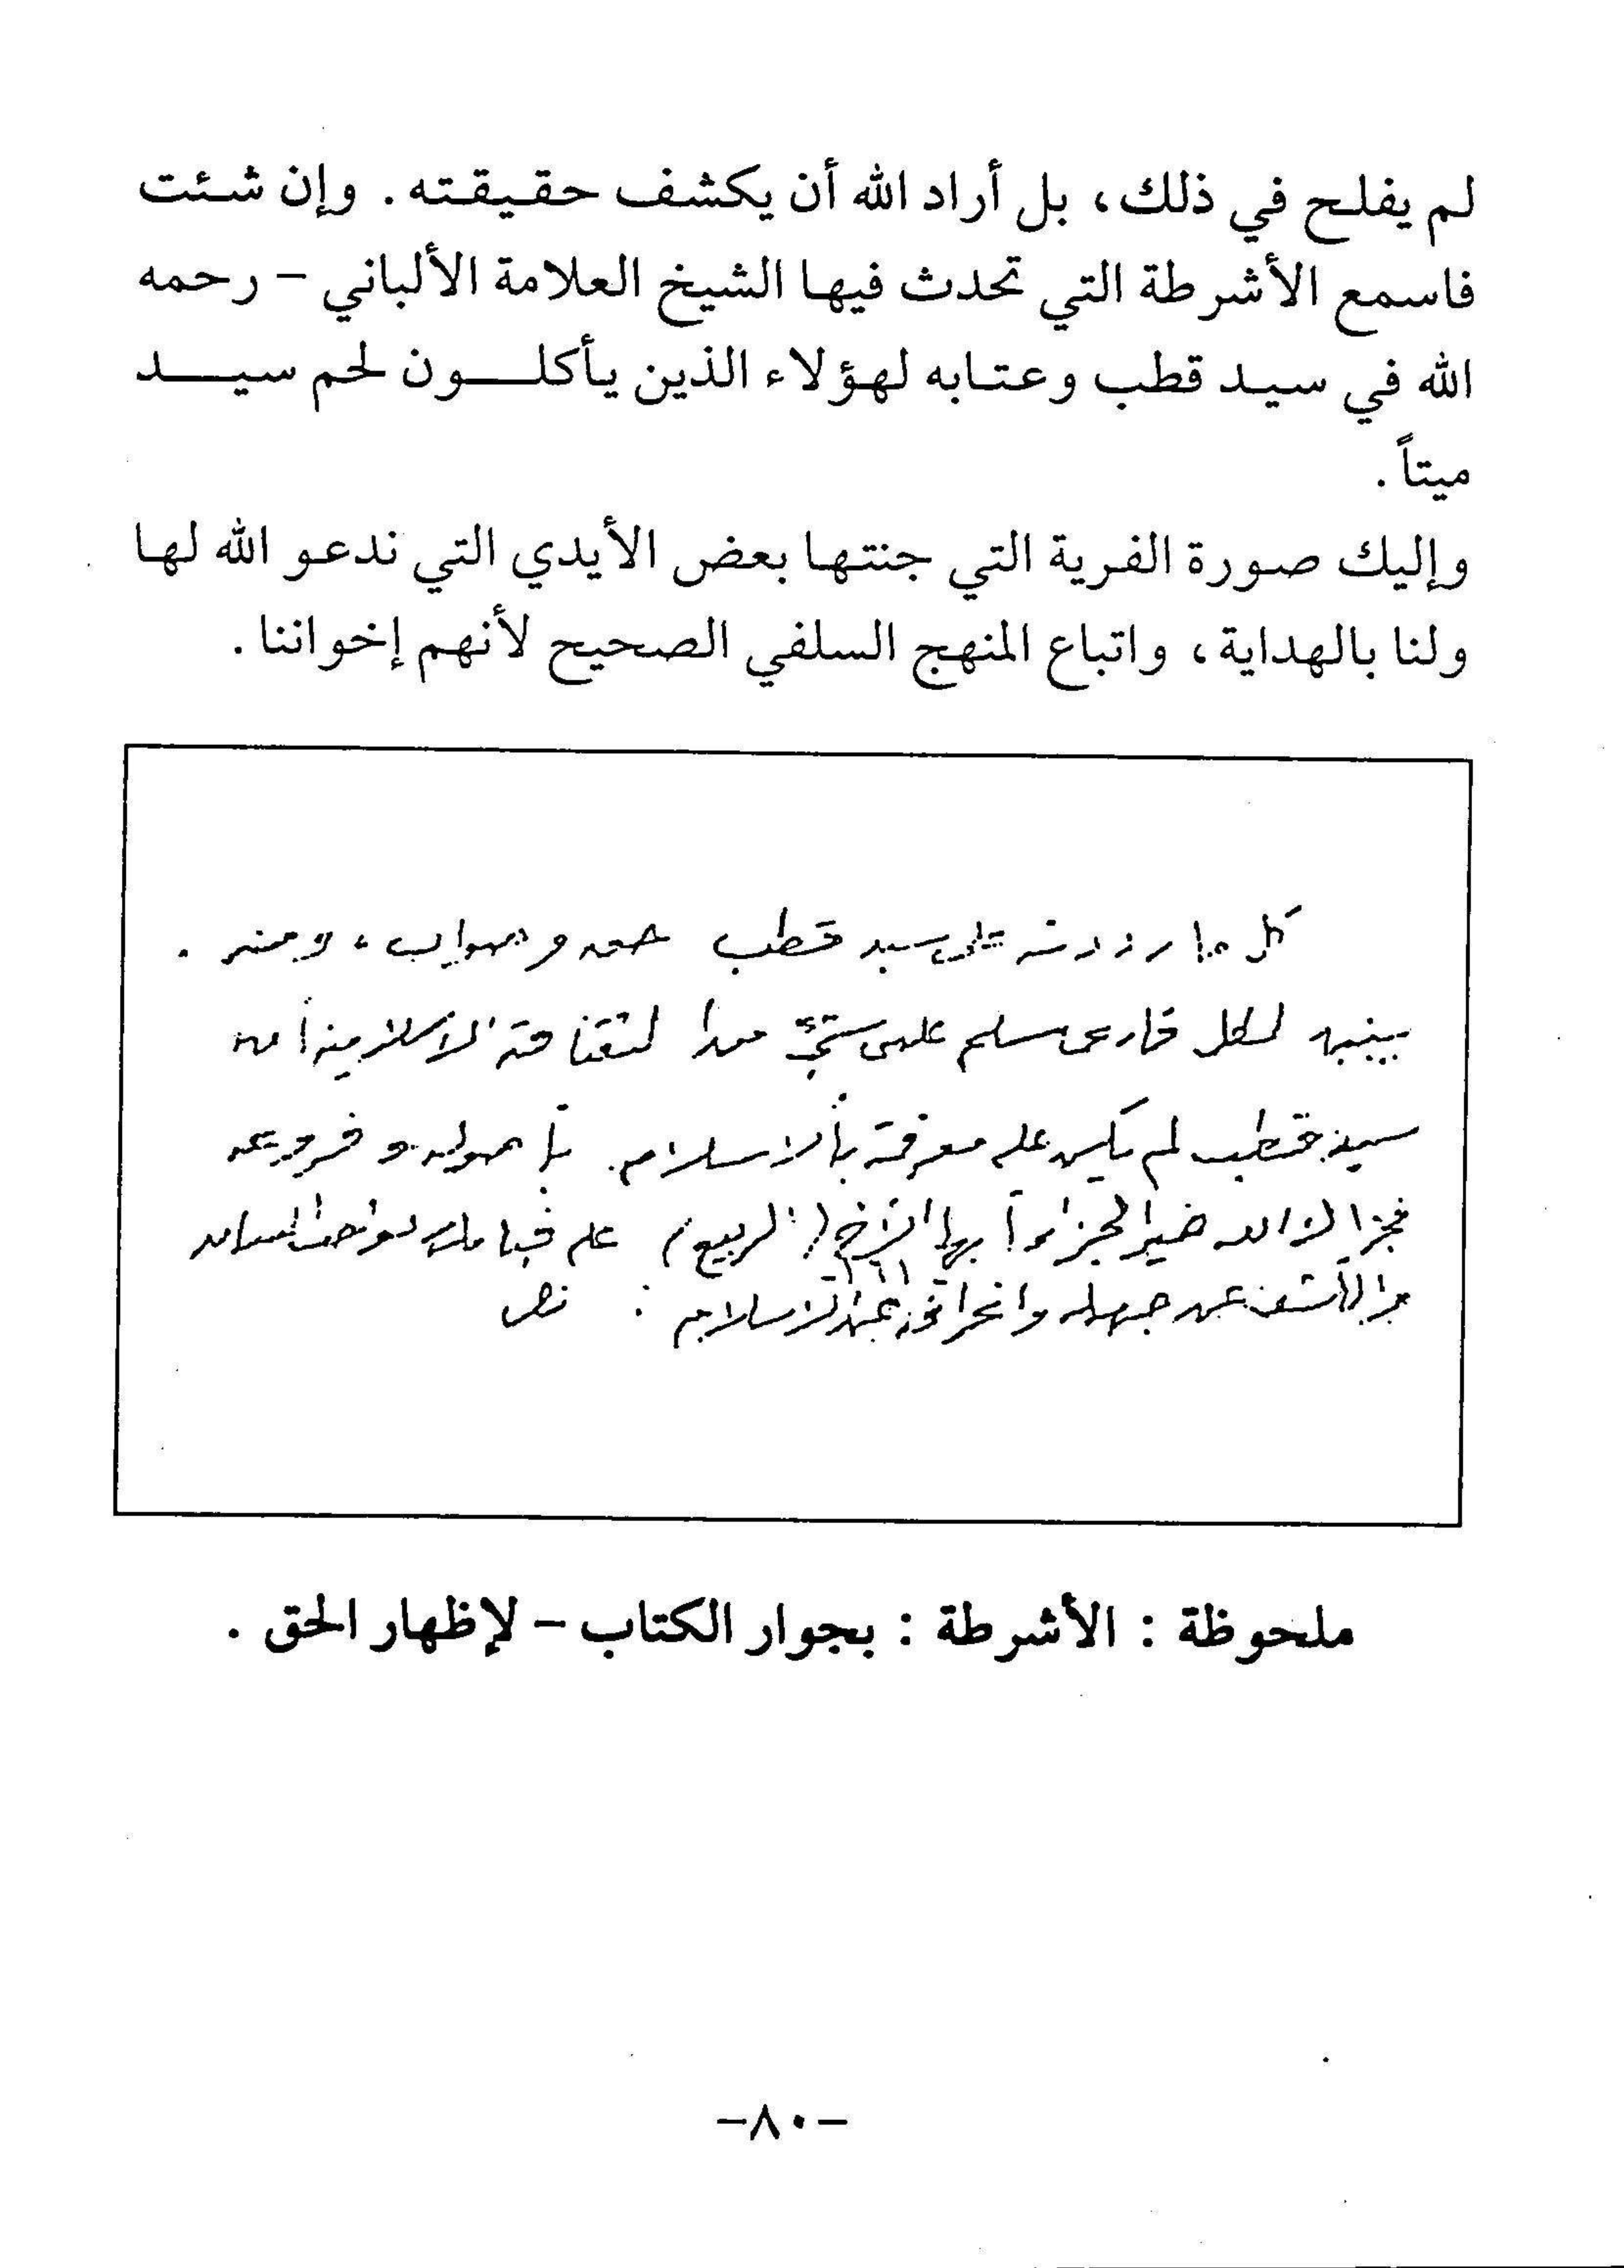 لم يفلح في ذلك، بل أراد الله أن يكشف حقيقته. وإن شئت
فاسمع الأشرطة التي تحدث فيها الشيخ العلامة الألباني - رحمه
الله في سيد قطب وعتابه لهؤلاء الذين يأكلون لحم سيد
ميتاً.
وإليك صورة الفرية التي جنتها بعض الأيدي التي ندعو الله لها
ولنا بالهداية، واتباع المنهج السلفي الصحيح لأنهم إخواننا.
كل ما رددته على سيد قطب حق وصواب، ومنه
يتبين لكل قارئ مسلم على شيء من الثقافة الاسلامية أن
سيد قطب لم يكن على معرفة بالاسلام بأصوله وفروعه
فجزاك الله خير الجزاء أيها الأخ (الربيع) على قيامك بواجب البيان
والكشف عن جهله وانحرافه عن الاسلام
ملحوظة : الأشرطة : بجوار الكتاب - لإظهار الحق .
-٨٠-